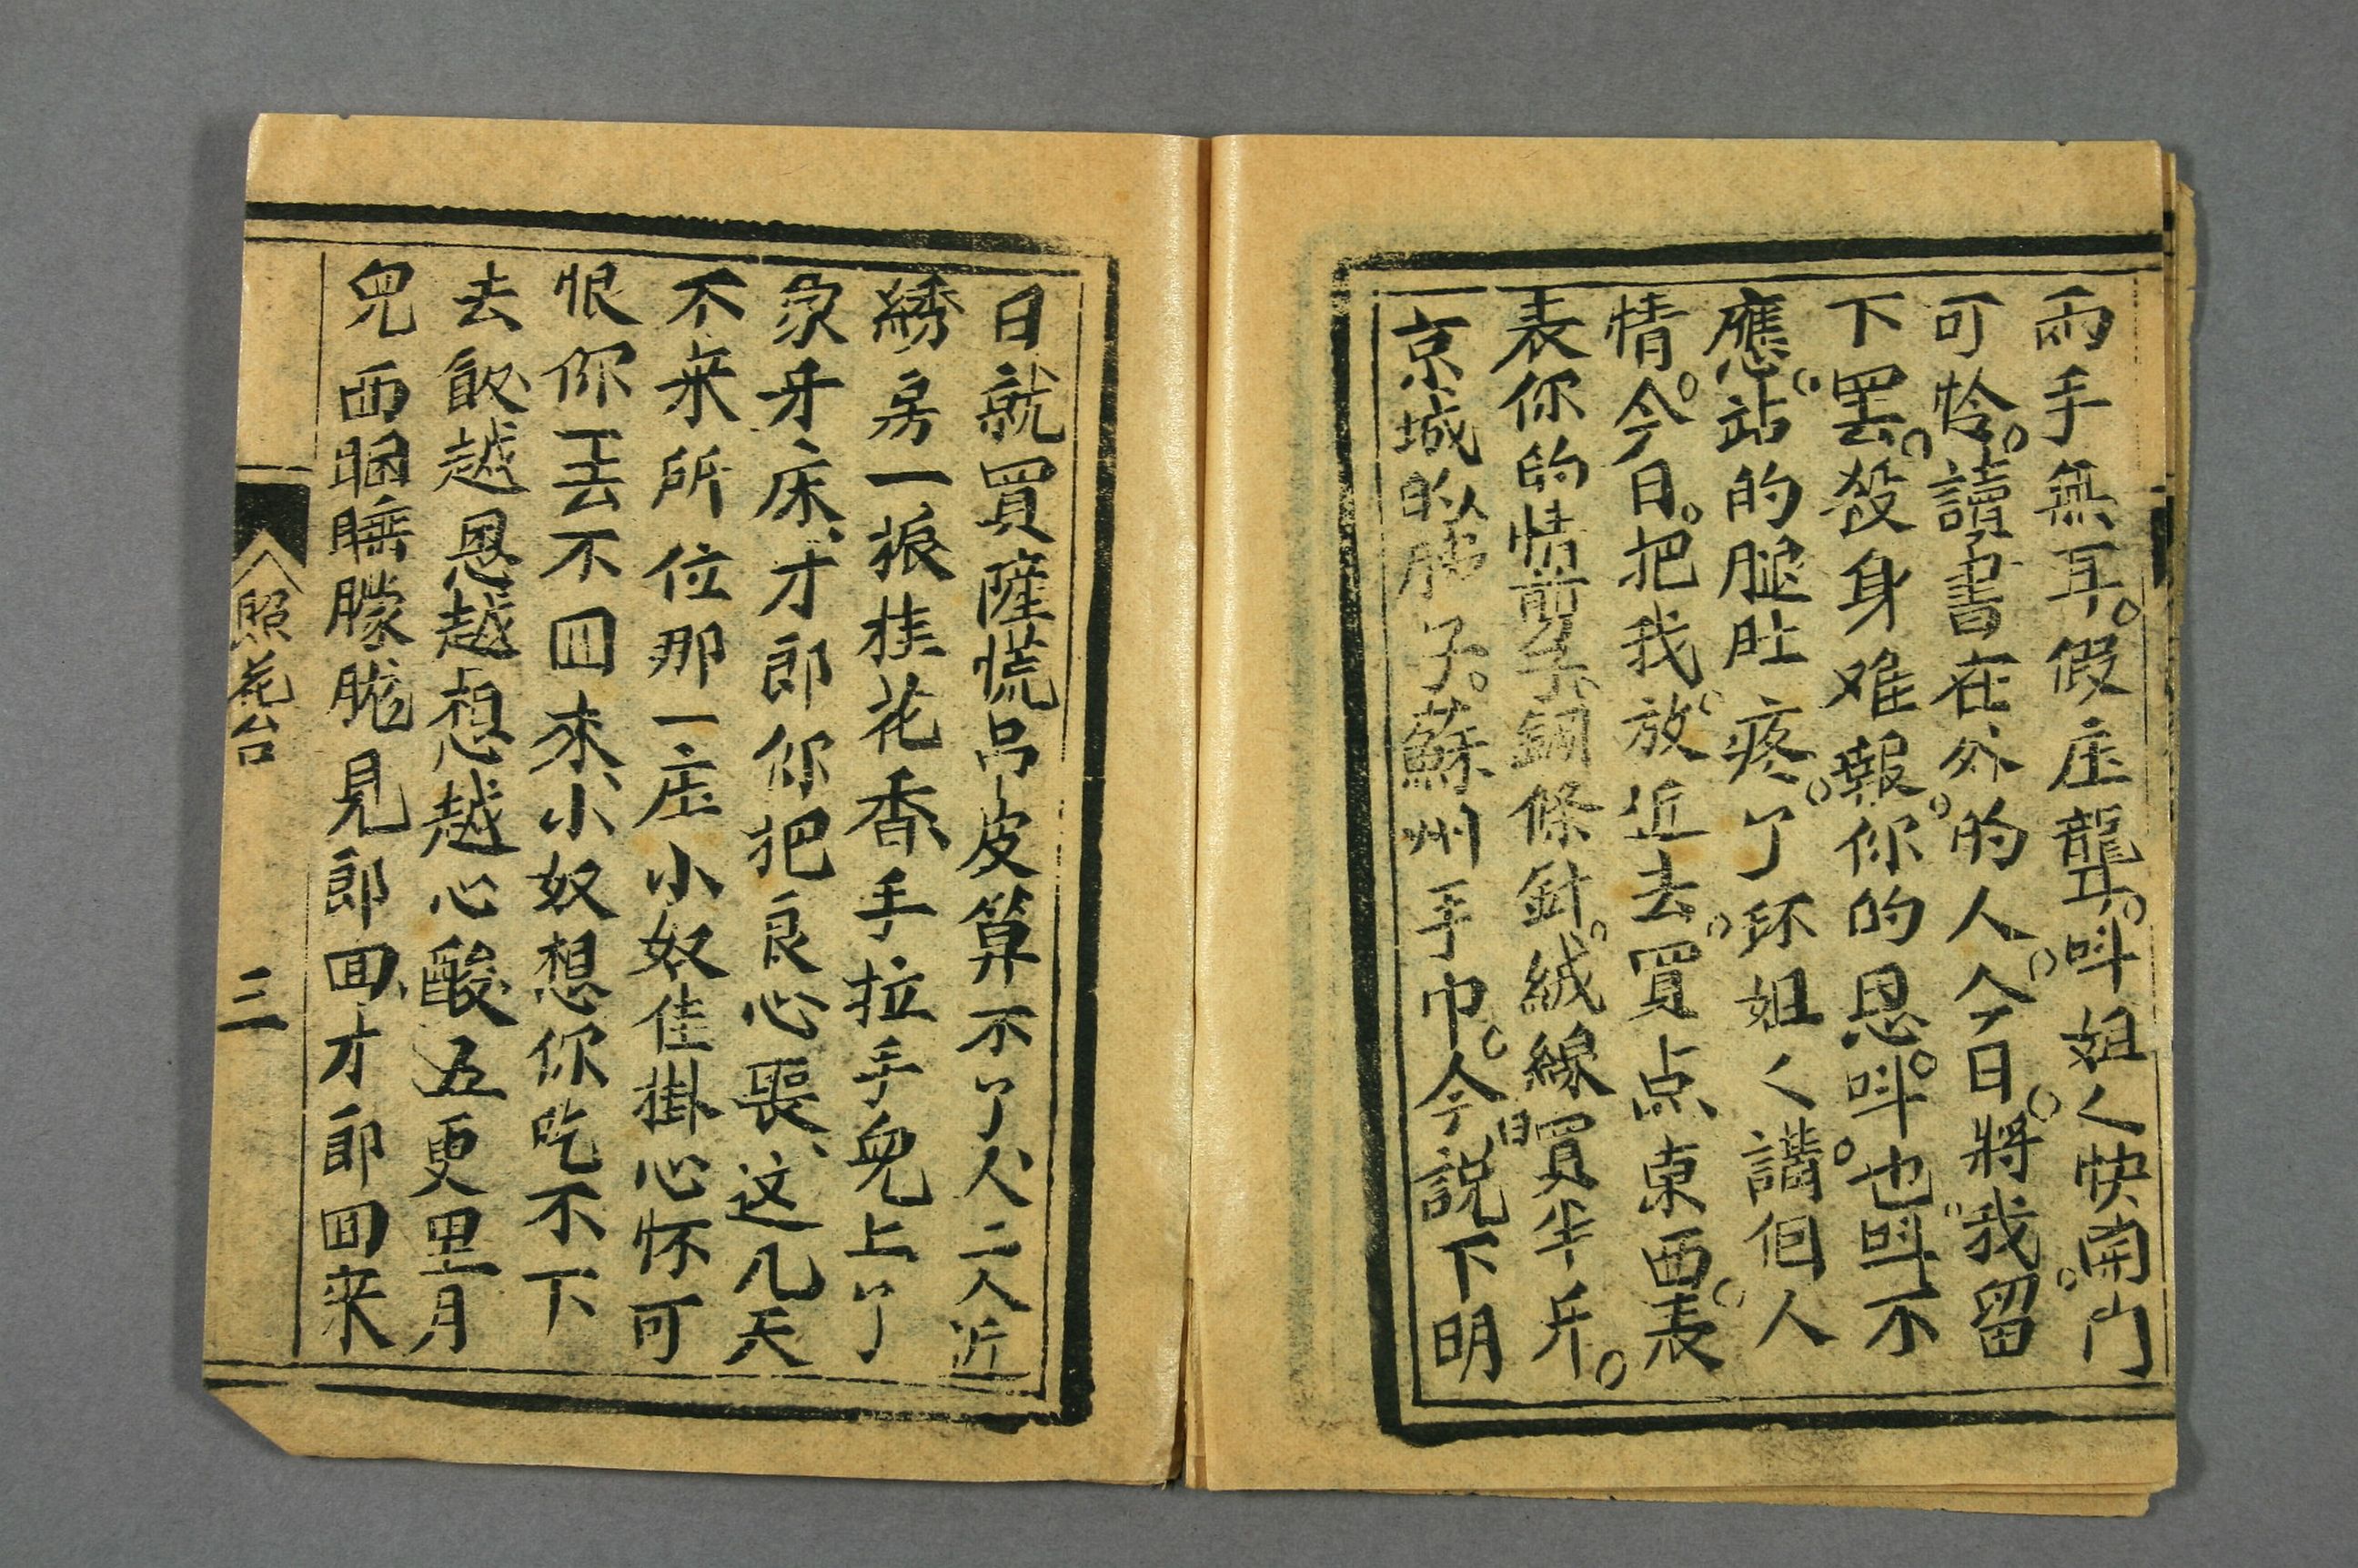 兩手無耳。假庄聾耳。呌姐〱快開門
可怜。讀書在外的人。今日。將我留
下罢。殺身难報。你的恩。呌。也呌不
應。站的腿肚疼。了环姐〱講個人
情。今日。把我放近去。買点東西。表
表你的情剪子。鋼條針。絨線買半斤。
京城的子。蘇州手巾。今日説下明
日就買薩慌吕皮算不了人二人近
綉房一振桂花香手拉手兒上了
象牙床、才郎你把良心喪、这几天
不来所位那一庄小奴佳掛心怀可
恨你丟不回來、小奴想你吃不下
去飯越恩越想越心酸五更里月
兒西睏睡朦胧見郎回、才郎回来
照花台 三